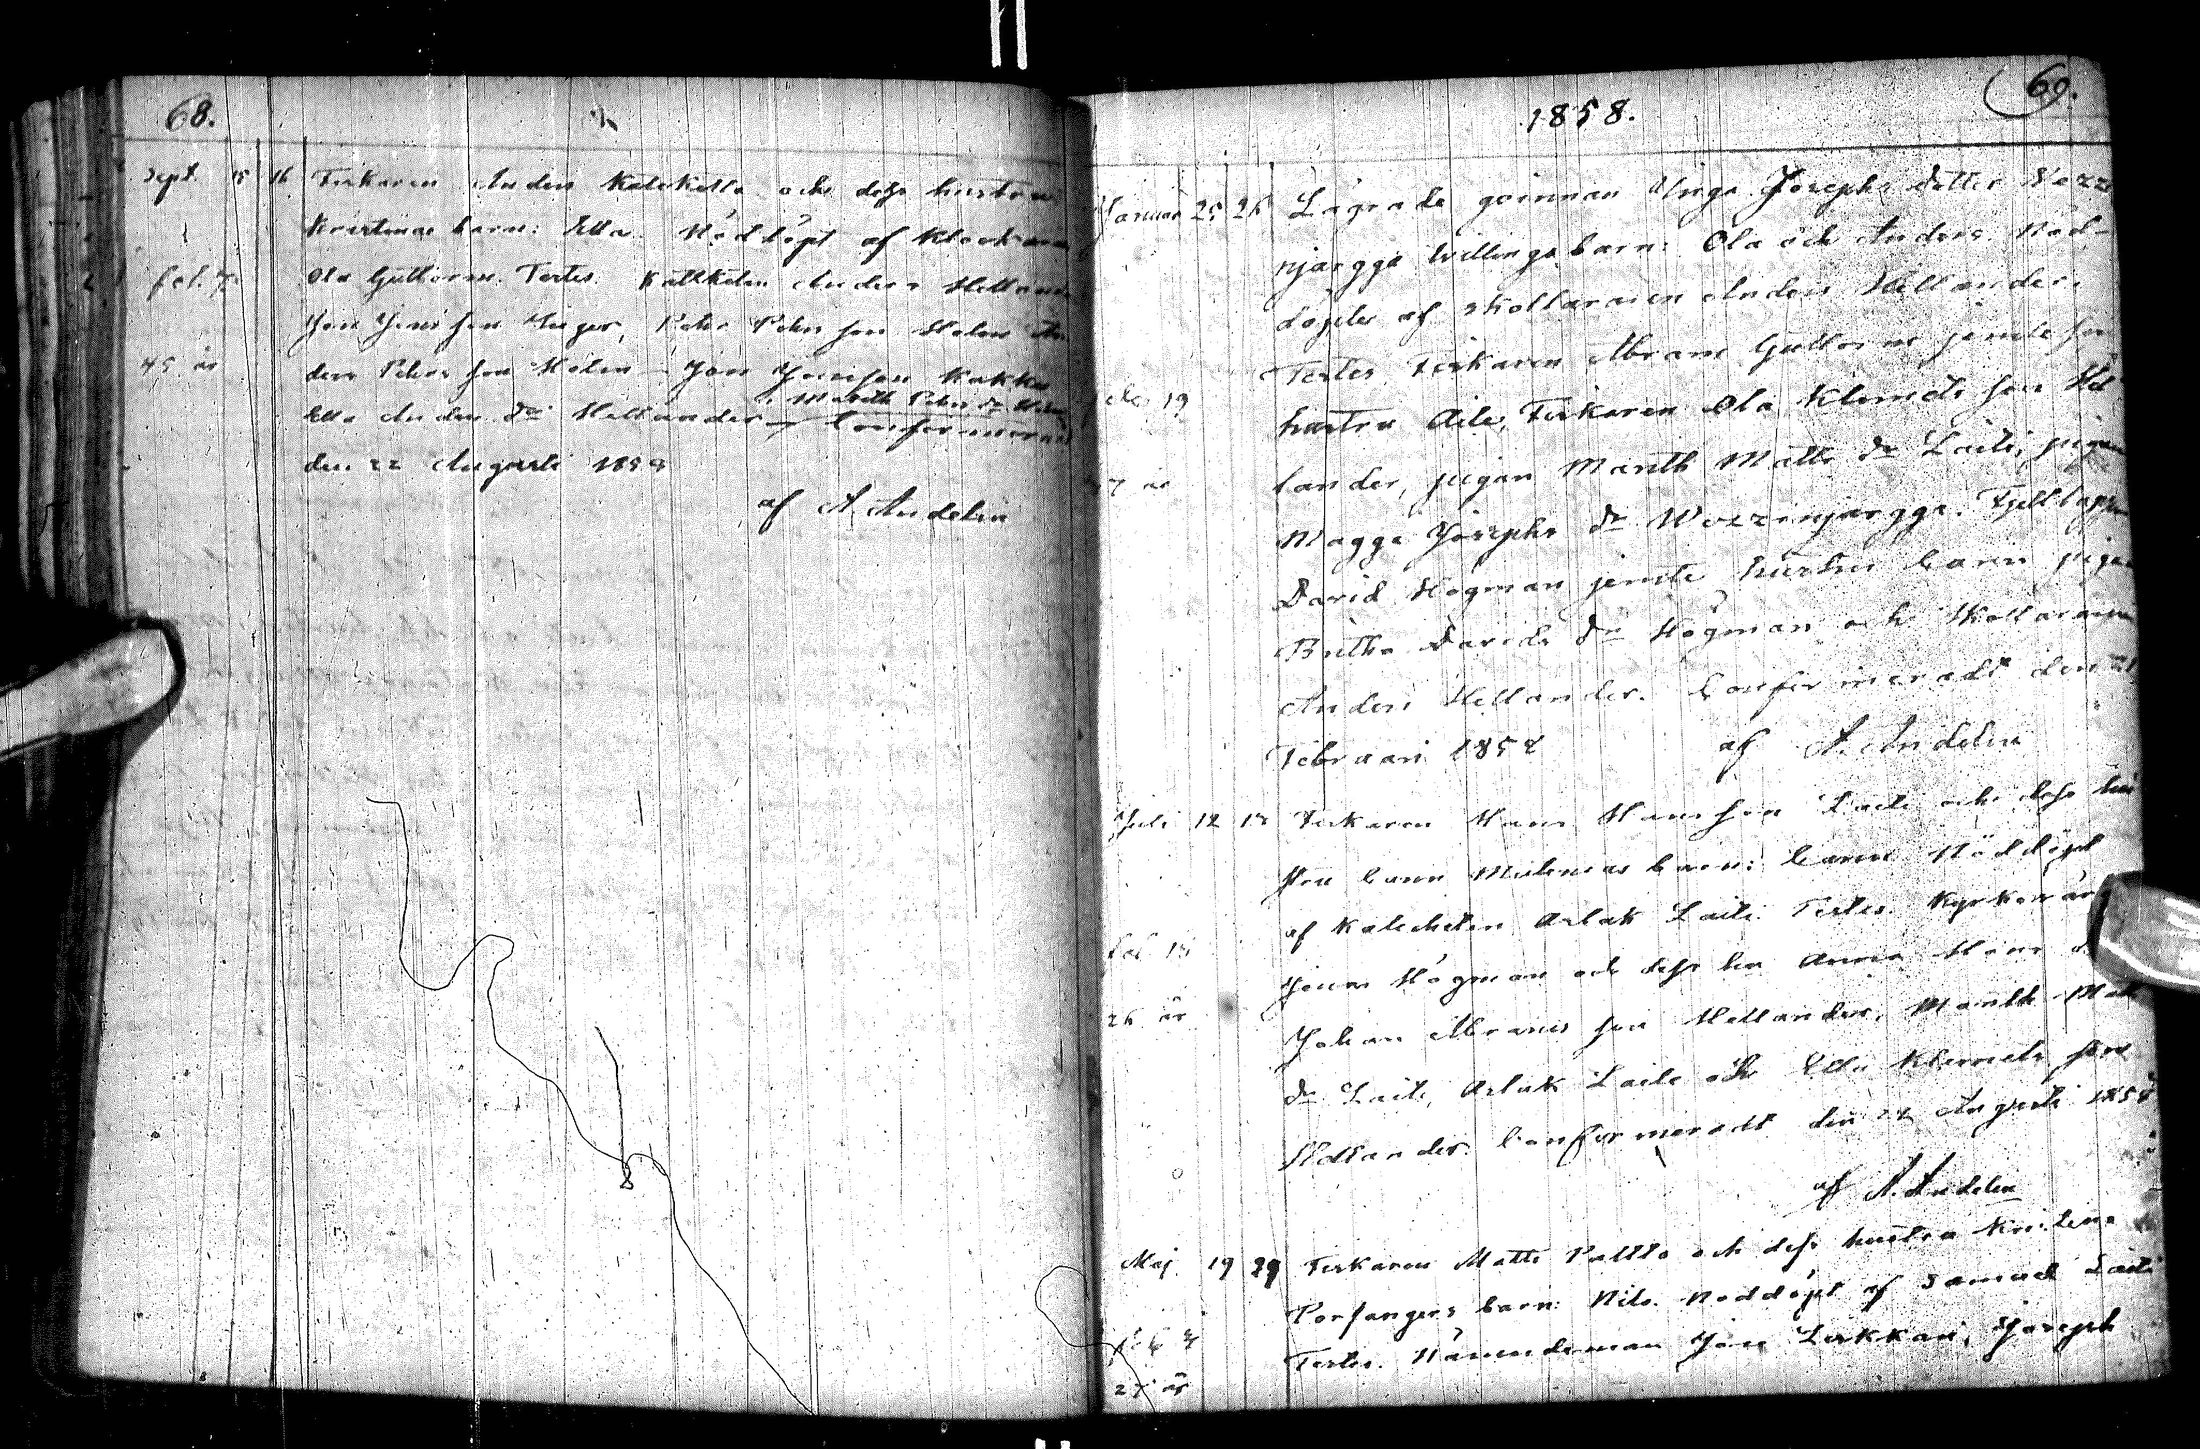 68.
Sept. 15 16 Fiskaren Anders Kalekella och dess hustru
Kristinas barn: Ella. Nöddöpt af Klockaren
fol. 7. Ola Guttorm. Testes. Anders Hellander
Jon Jonsson Peder Peders son Holm An-
45 år ders Peders son Holm Jon Jonsson
Marith Peders dr
Ella Anders dr Hellander Confirmeradt
den 22 Augusti 1858
af A. Andelin
69.
1858.
Januari 25 26 Lägrade qvinnan Inga Josephs dotter
njargga tvillingabarn: Ola och Anders. Nöd-
döpte af skolläraren Anders Hellander.
Testes Fiskaren Abram Guttorm jemte
19 hustru Aile, Fiskaren Ola Klemets son Hel-
lander, pigan Marith Matts dr Laiti, pigan
Magga Josephs dr Wezzinjargga. Fjellappen
David Högman jemte hustru Carin pigan
Britha Davids dr Högman och Skolläraren
Anders Hellander. Confirmeradt den 21
Februari 1858 af A. Andelin
Juli 12 18 Fiskaren Hans Hansson Laiti och dess hu-
stru Carin barn: Carin Nöddöpt
fol 18 af Katecheten Aslak Laiti. Testes. Kyrkovär
Jouni Högman och dess hu Anna Hans d
26 år Johan Abrams son Hellander, Marith Matts
dr Laiti, Aslak Laiti och Ella Klemets
Hellander. Confirmeradt den 22 Augusti 1858
af A. Andelin
Maj 19 29 Fiskaren Matts Paltto och dess hustru Kristina
Porsangers barn: Nils. Nöddöpt af Samuel Laiti
Testes. Nämndeman Jon Laxkkari, Joseph
27 år